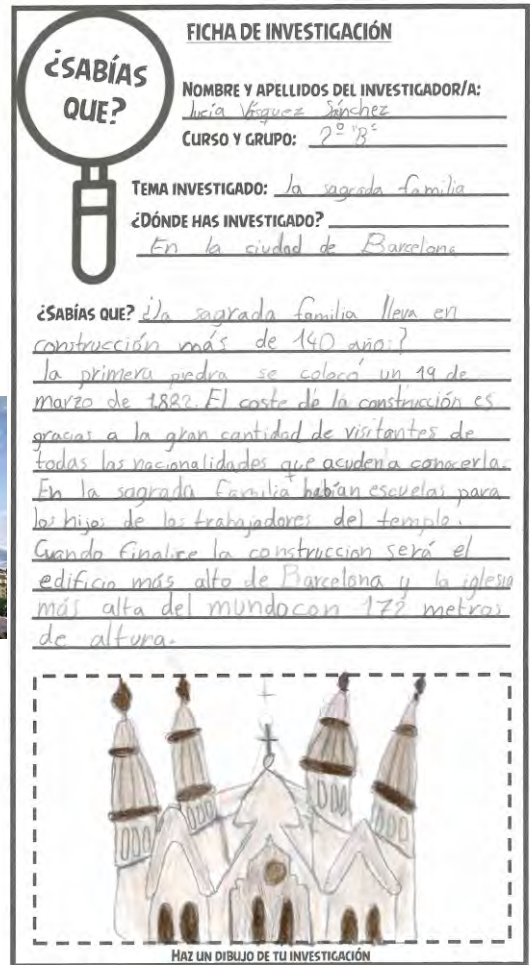 FICHA DE INVESTIGACIÓN
¿SABÍAS
QUE?
NOMBRE Y APELLIDOS DEL INVESTIGADOR/A:
lucía Vásquez Sánchez
CURSO Y GRUPO: 2º "B"
TEMA INVESTIGADO: la sagrada familia
¿DÓNDE HAS INVESTIGADO?
En la ciudad de Barcelona
¿SABÍAS QUE? ¿la sagrada familia lleva en
construcción más de 140 años?
la primera piedra se colocó un 19 de
marzo de 1882. El coste de la construcción es
gracias a la gran cantidad de visitantes de
todas las nacionalidades que acuden a conocerla.
En la sagrada familia habían escuelas para
los hijos de los trabajadores del templo.
Cuando finalice la construccion será el
edificio más alto de Barcelona y la iglesia
más alta del mundo con 172 metros
de altura.
HAZ UN DIBUJO DE TU INVESTIGACIÓN